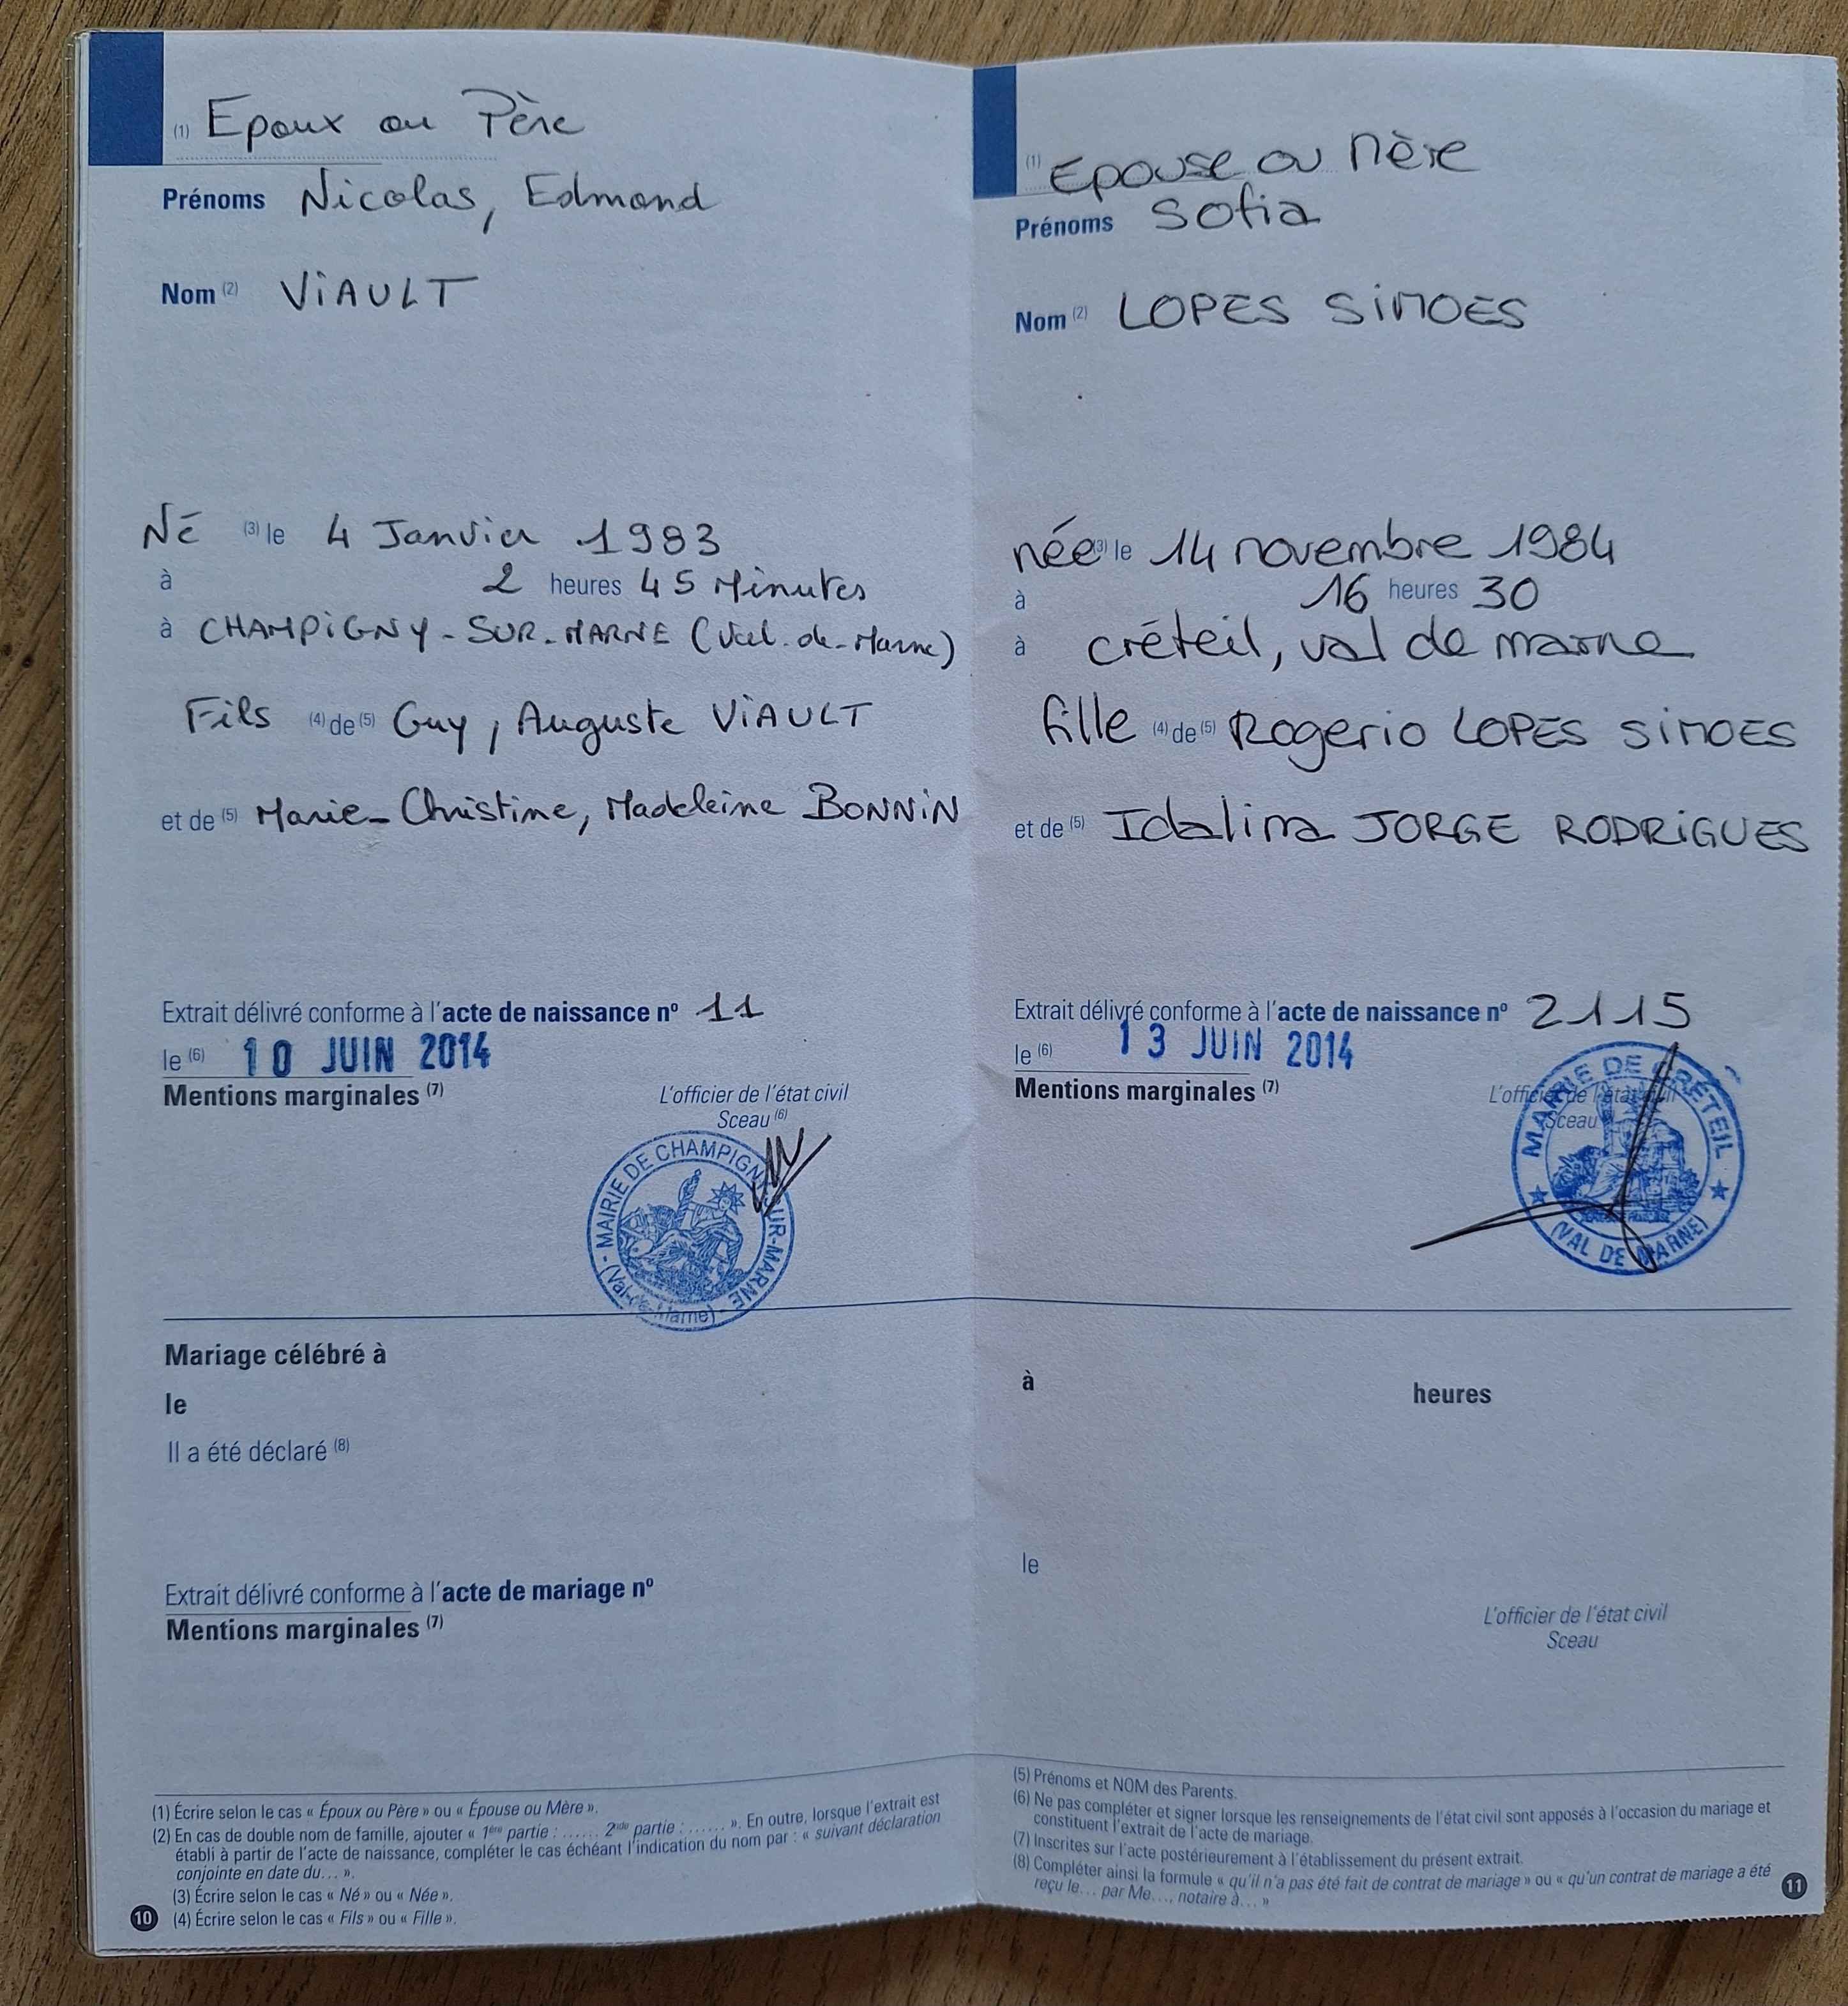 (1) Epoux ou Père
Prénoms Nicolas, Edmond
Nom (2) ViAULT
Né (3) le 4 Janvier 1983
à 2 heures 45 Minutes
à CHAMPiGNY-SUR-MARNE (Val-de-Marne)
Fils (4) de (5) Guy, Auguste ViAULT
et de (5) Marie-Christine, Madeleine BONNiN
Extrait délivré conforme à l'acte de naissance nº 11
le (6) 10 JUIN 2014
Mentions marginales (7)
L'officier de l'état civil
Sceau (6)
MAIRIE DE CHAMPIGNY-SUR-MARNE
(Val-de-Marne)
Mariage célébré à
le
Il a été déclaré (8)
Extrait délivré conforme à l'acte de mariage nº
Mentions marginales (7)
(1) Écrire selon le cas « Époux ou Père » ou « Épouse ou Mère ».
(2) En cas de double nom de famille, ajouter « 1ère partie : ...... 2nde partie : ...... ». En outre, lorsque l'extrait est
établi à partir de l'acte de naissance, compléter le cas échéant l'indication du nom par : « suivant déclaration
conjointe en date du... ».
(3) Écrire selon le cas « Né » ou « Née ».
(4) Écrire selon le cas « Fils » ou « Fille ».
10
(1) Epouse ou Mère
Prénoms Sofia
Nom (2) LOPES SiMOES
née (3) le 14 novembre 1984
à 16 heures 30
à créteil, val de marne
fille (4) de (5) Rogerio LOPES SiMOES
et de (5) Idalina JORGE RODRiGUES
Extrait délivré conforme à l'acte de naissance nº 2115
le (6) 13 JUIN 2014
Mentions marginales (7)
L'officier de l'état civil
Sceau
MAIRIE DE CRÉTEIL
(VAL DE MARNE)
à heures
le
L'officier de l'état civil
Sceau
(5) Prénoms et NOM des Parents.
(6) Ne pas compléter et signer lorsque les renseignements de l'état civil sont apposés à l'occasion du mariage et
constituent l'extrait de l'acte de mariage.
(7) Inscrites sur l'acte postérieurement à l'établissement du présent extrait.
(8) Compléter ainsi la formule « qu'il n'a pas été fait de contrat de mariage » ou « qu'un contrat de mariage a été
reçu le... par Me..., notaire à... »
11